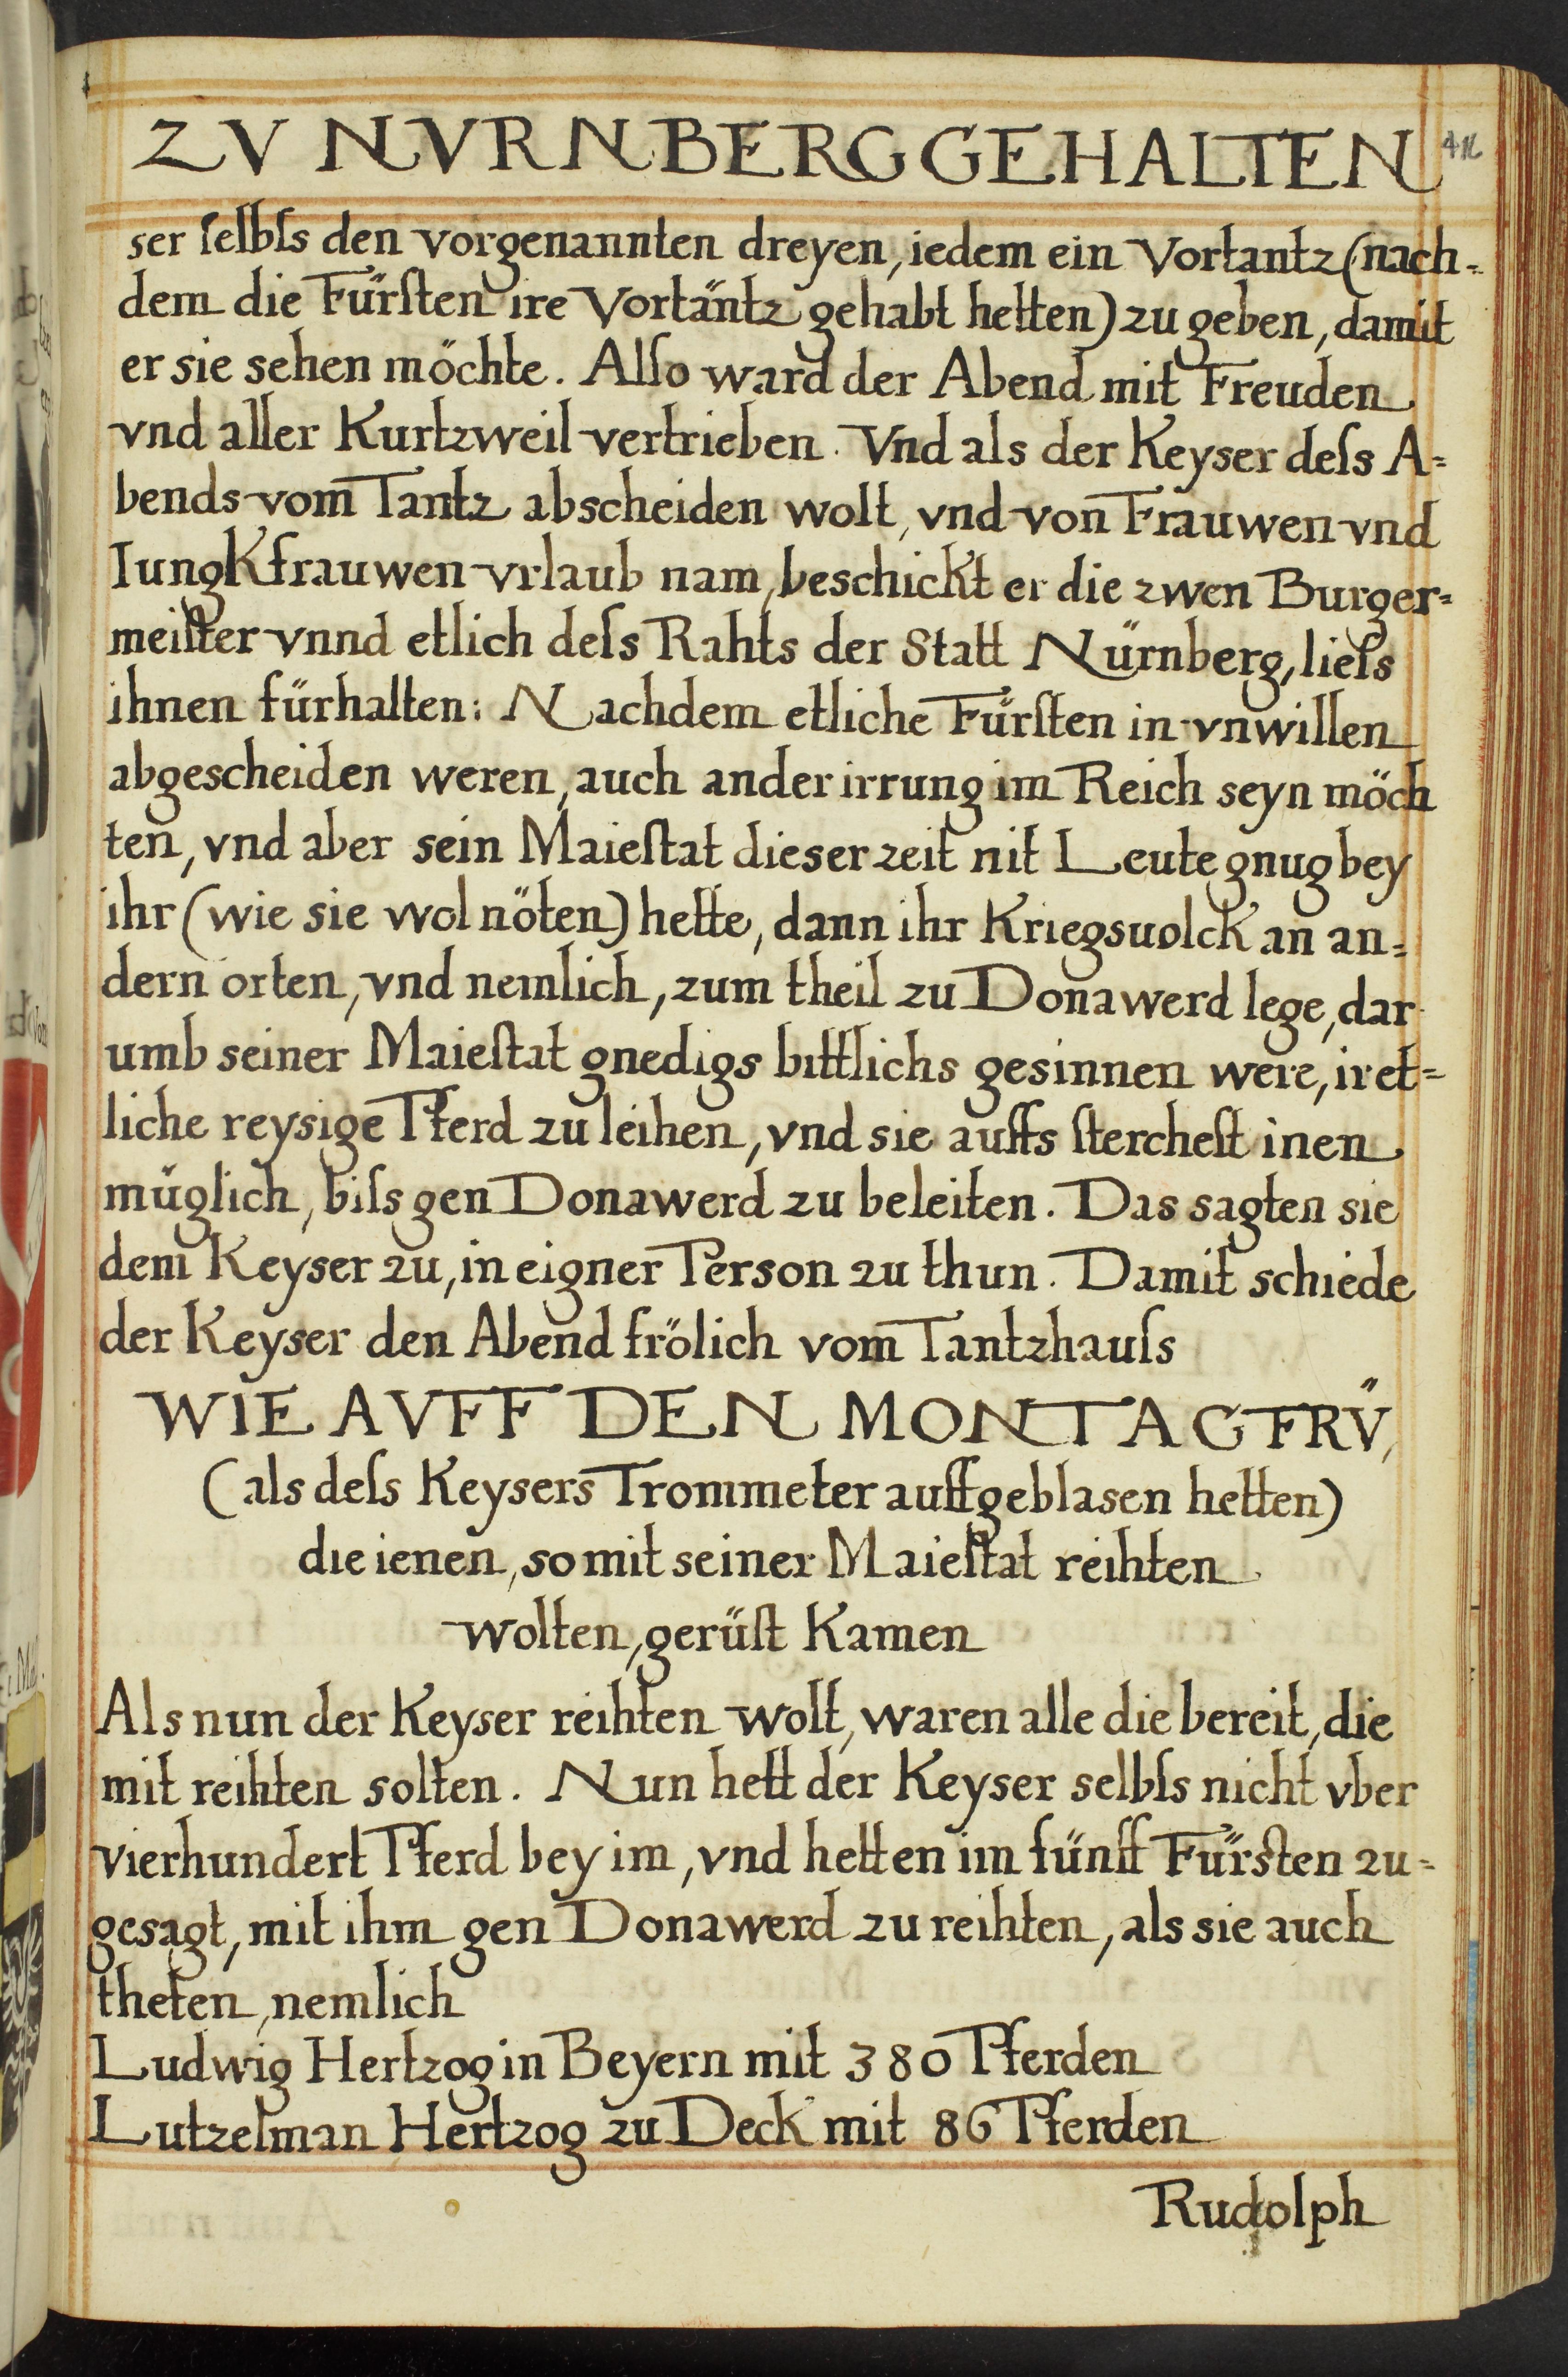 ZV NVRNBERG GEHALTEN
ser ſelbſs den vorgenannten dreyen, iedem ein Vortantz (nach=
dem die Fürſten ire Vortäntz gehabt hetten) zu geben, damit
er sie sehen möchte. Alſo ward der Abend mit Freuden
vnd aller Kurtzweil vertrieben. Vnd als der Keyser deſs A=
bends vom Tantz abscheiden wolt, vnd von Frauwen vnd
Iungkfrauwen vrlaub nam, beschickt er die zwen Burger=
meiſter vnnd etlich deſs Rahts der Statt Nürnberg, lieſs
ihnen fürhalten: Nachdem etliche Fürſten in vnwillen
abgescheiden weren, auch ander irrung im Reich seyn möch
ten, vnd aber sein Maieſtat dieser zeit nit Leute gnug bey
ihr (wie sie wol nöten) hette, dann ihr Kriegsuolck an an=
dern orten, vnd nemlich, zum theil zu Donawerd lege, dar
umb seiner Maieſtat gnedigs bittlichs gesinnen were, ir et=
liche reysige Pferd zu leihen, vnd sie auffs ſtercheſt inen
müglich, biſs gen Donawerd zu beleiten. Das sagten sie
dem Keyser zu, in eigner Person zu thun. Damit schiede
der Keyser den Abend frölich vom Tantzhauſs
WIE AVFF DEN MONTAG FRV̈,
(als deſs Keysers Trommeter auffgeblasen hetten)
die ienen, so mit seiner Maieſtat reihten
wolten, gerüſt Kamen
Als nun der Keyser reihten wolt, waren alle die bereit, die
mit reihten solten. Nun hett der Keyser selbſs nicht vber
vierhundert Pferd bey im, vnd hetten im fünff Fürſten zu=
gesagt, mit ihm gen Donawerd zu reihten, als sie auch
theten, nemlich
Ludwig Hertzog in Beyern mit 380 Pferden
Lutzelman Hertzog zu Deck mit 86 Pferden
Rudolph